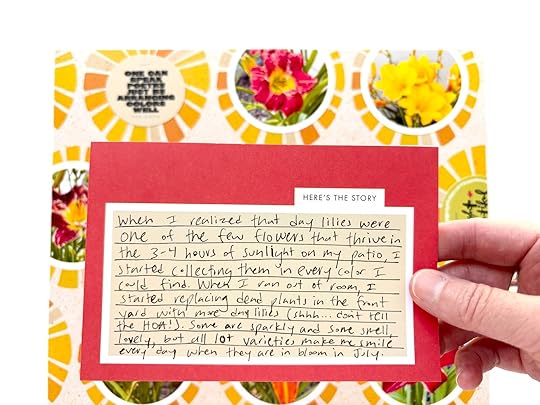 ONE CAN
SPEAK
POETRY
JUST BY
ARRANGING
COLORS
WELL
HERE'S THE STORY
When I realized that day lilies were
one of the few flowers that thrive in
the 3-4 hours of sunlight on my patio, I
started collecting them in every color I
could find. When I ran out of room, I
started replacing dead plants in the front
yard with more day lilies (shhh... don't tell
the HOA!). Some are sparkly and some smell
lovely, but all 10+ varieties make me smile
every day when they are in bloom in July.